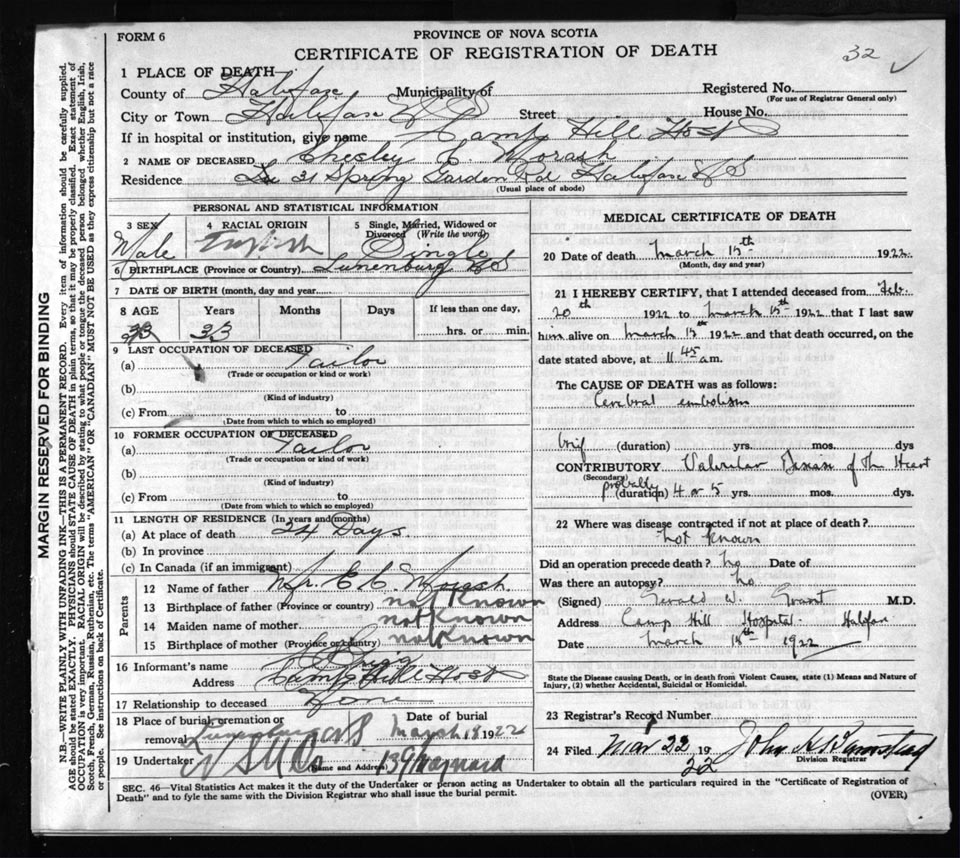 FORM 6
PROVINCE OF NOVA SCOTIA
CERTIFICATE OF REGISTRATION OF DEATH
32 ✓
1 PLACE OF DEATH—
County of Halifax Municipality of
Registered No.
(For use of Registrar General only)
City or Town Halifax N S Street House No.
If in hospital or institution, give name Camp Hill Host
2 NAME OF DECEASED Chesley C. Morash
Residence 31 Spring Garden Rd Halifax N S
(Usual place of abode)
PERSONAL AND STATISTICAL INFORMATION
3 SEX Male
4 RACIAL ORIGIN English
5 Single, Married, Widowed or Divorced (Write the word) Single
6 BIRTHPLACE (Province or Country) Lunenburg N S
7 DATE OF BIRTH (month, day and year)
8 AGE Years Months Days If less than one day,
33 hrs. or min.
9 LAST OCCUPATION OF DECEASED
(a) Tailor
(Trade or occupation or kind or work)
(b)
(Kind of industry)
(c) From to
(Date from which to which so employed)
10 FORMER OCCUPATION OF DECEASED
(a) Tailor
(Trade or occupation or kind of work)
(b)
(Kind of industry)
(c) From to
(Date from which to which so employed)
11 LENGTH OF RESIDENCE (In years and months)
(a) At place of death 24 Days.
(b) In province
(c) In Canada (if an immigrant)
Parents
12 Name of father Mr. E. C. Morash
13 Birthplace of father (Province or country) not Known
14 Maiden name of mother not Known
15 Birthplace of mother (Province or country) not Known
16 Informant's name
Address Camp Hill Host
17 Relationship to deceased
18 Place of burial, cremation or removal Lunenburg N S
Date of burial March 18 1922
19 Undertaker N S U Co 139 Maynard
(Name and Address)
MEDICAL CERTIFICATE OF DEATH
20 Date of death March 15th 1922
(Month, day and year)
21 I HEREBY CERTIFY, that I attended deceased from Feb.
20th 1922 to March 15th 1922 that I last saw
him alive on March 15th 1922 and that death occurred, on the
date stated above, at 11 45 am.
The CAUSE OF DEATH was as follows:
Cerebral embolism
brief (duration) yrs. mos. dys
CONTRIBUTORY Valvular Disease of the Heart
(Secondary)
probably (duration) 4 or 5 yrs. mos. dys.
22 Where was disease contracted if not at place of death?
not known
Did an operation precede death? no Date of
Was there an autopsy? no
(Signed) Gerald W. Grant M.D.
Address Camp Hill Hospital. Halifax
Date March 15th 1922
State the Disease causing Death, or in death from Violent Causes, state (1) Means and Nature of
Injury, (2) whether Accidental, Suicidal or Homicidal.
23 Registrar's Record Number
24 Filed Mar 22 19 22
Division Registrar
SEC. 46—Vital Statistics Act makes it the duty of the Undertaker or person acting as Undertaker to obtain all the particulars required in the "Certificate of Registration of
Death" and to fyle the same with the Division Registrar who shall issue the burial permit.
(OVER)
MARGIN RESERVED FOR BINDING
N.B.—WRITE PLAINLY WITH UNFADING INK—THIS IS A PERMANENT RECORD. Every item of information should be carefully supplied.
AGE should be stated EXACTLY. PHYSICIANS should STATE CAUSE OF DEATH in plain terms, so that it may be properly classified. Exact statement of
OCCUPATION is very important. RACIAL ORIGIN will be described by stating to what people or tongue the deceased person belonged, whether English, Irish,
Scotch, French, German, Russian, Ruthenian, etc. The terms "AMERICAN" OR "CANADIAN" MUST NOT BE USED as they express citizenship but not a race
or people. See instructions on back of Certificate.